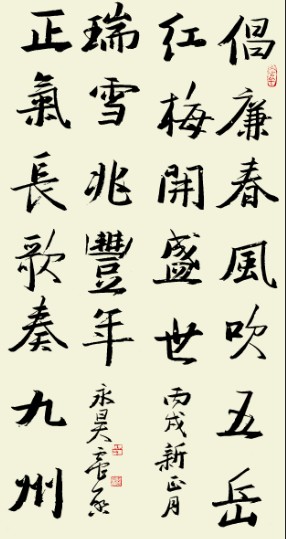 倡廉春風吹五岳
红梅開盛世
丙戌新正月
瑞雪兆豐年
永昊
正氣長歌奏九州